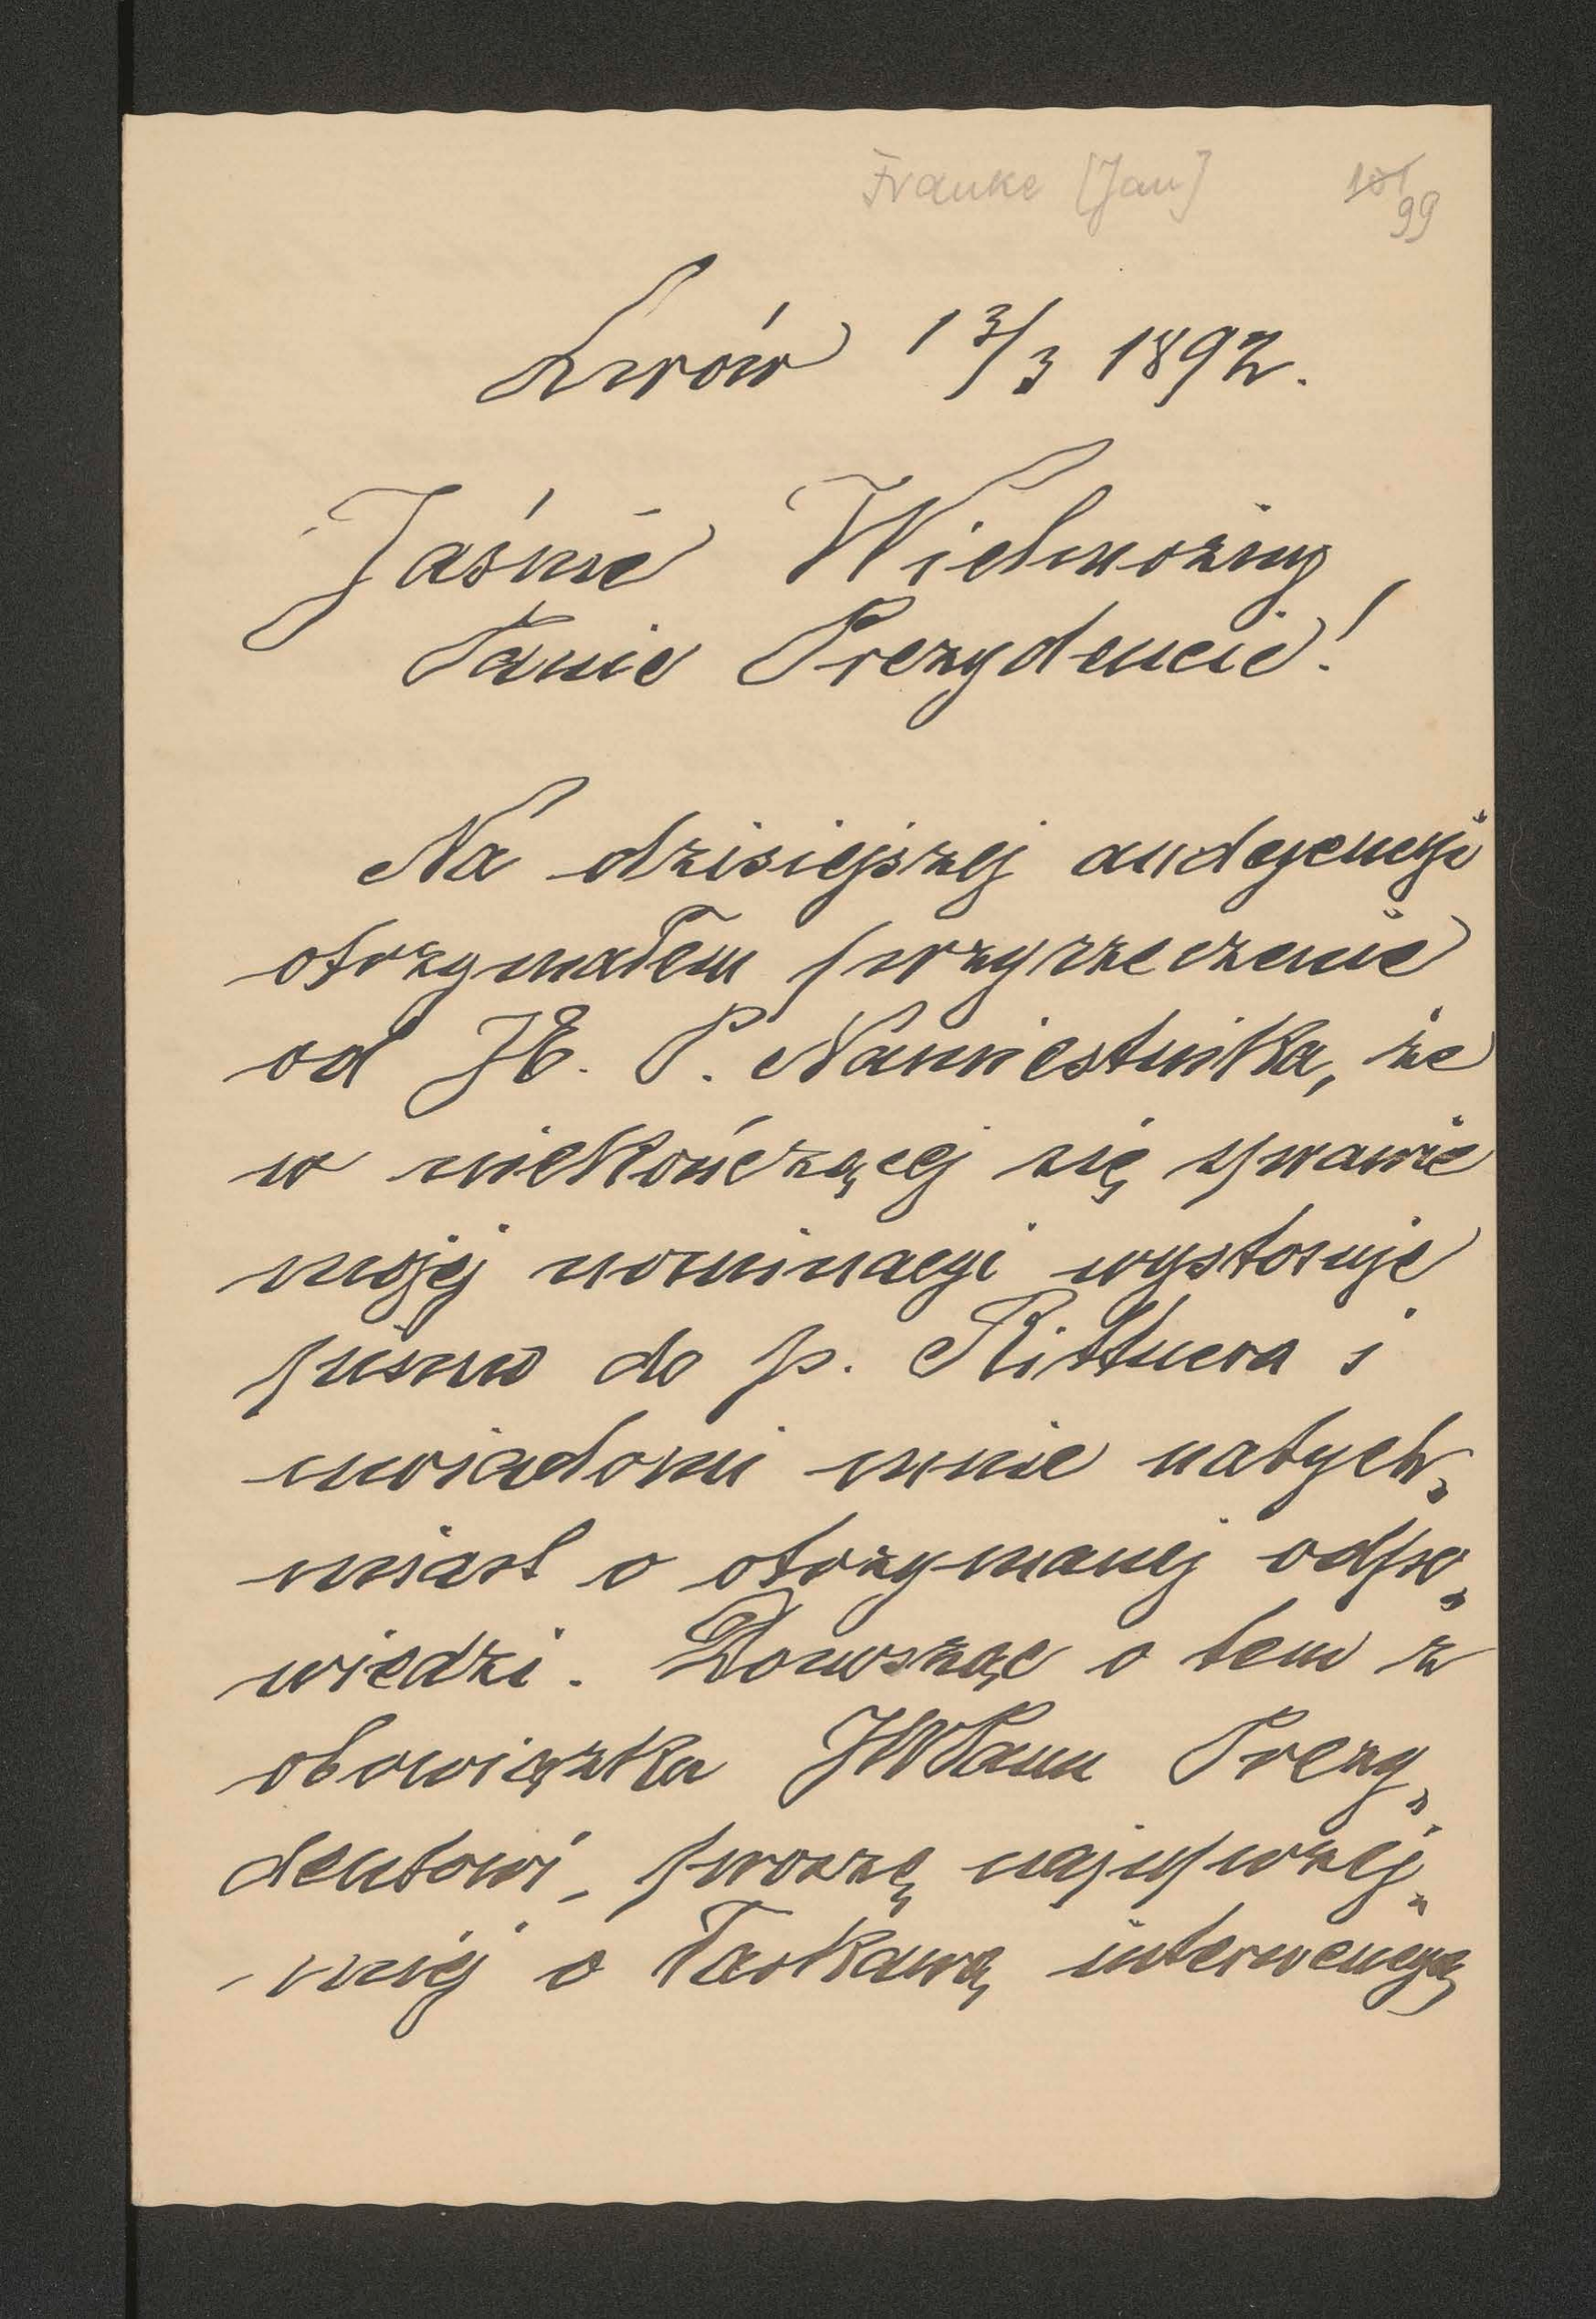 Franke [Jan]
101
99
Lwów 13/3 1892.
Jaśnie Wielmożny
Panie Prezydencie!
Na dzisiejszej audyencyi
otrzymałem przyrzeczenie
od JE. P. Namiestnika, że
w niekończącej się sprawie
mojej nominacyi wystosuje
pismo do p. Rittnera i
uwiadomi mnie natych„
miast o otrzymanej odpo„
wiedzi. Donosząc o tem z
obowiązku JWPanu Prezy„
dentowi, proszę najuprzej„
miej o łaskawą interwencyą